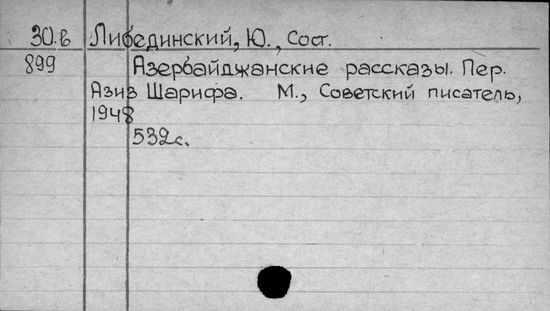 30.в Либединский, Ю., Сост.
899 Азербайджанские рассказы. Пер.
Азиз Шарифа. М., Советский писатель,
1948
532с.